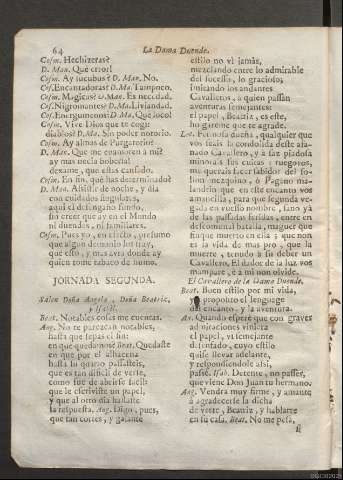 64
La Dama Duende.
Cosm. Hechizeras?
D. Man. Que error!
Cosm. Ay sucubus? D. Man. No.
Cos. Encantadoras? D. Ma. Tampoco.
Cosm. Magicas? D. Man. Es necedad.
Cos. Nigromantes? D. Man. Liviandad.
Cos. Energumenos? D. Ma. Què loco!
Cosm. Vive Dios que te cogì:
diablos? D. Ma. Sin poder notorio.
Cosm. Ay almas de Purgatorio?
D. Man. Que me enamoren à mi?
ay mas necia boberia!
dexame, que estás cansado.
Cosm. En fin, què has determinado?
D. Man. Assistir de noche, y dia
con cuidados singulares,
aqui el desengaño fundo,
sin creer que ay en el Mundo
ni duendes, ni familiares.
Cosm. Pues yo, en efecto, presumo
que algun demonio los tray,
que esto, y mas avrà donde ay
quien tome tabaco de humo.
JORNADA SEGUNDA.
Salen Doña Angela, Doña Beatriz,
y Isabèl.
Beat. Notables cosas me cuentas.
Ang. No te parezcan notables,
hasta que sepas el fin:
en què quedamos? Beat. Quedaste
en que por el alhacena
hasta su quarto passasteis,
que es tan dificil de verse,
como fue de abrirse facil:
que le escriviste un papel,
y que al otro dia hallaste
la respuesta. Ang. Digo, pues,
que tan cortès, y galante
estilo no vì jamàs,
mezclando entre lo admirable
del sucesso, lo gracioso;
imitando los andantes
Cavalleros, à quien passan
aventuras semejantes:
el papel, Beatriz, es este,
holgarème que te agrade.
Lee. Fermosa dueña, qualquier que
vos seais la condolida deste afa-
nado Cavallero, y à faz piadosa
minorais sus cuitas; ruegovos,
me querais facer sabidor del fo-
llon mezquino, ò Pagano ma-
landrin que en este encanto vos
amancilla, para que segunda ve-
gada en vuesso nombre, sano yà
de las passadas feridas, entre en
descomunal batalla, maguer que
finque muerto en ella; que non
es la vida de mas pro, que la
muerte, tenudo à su deber un
Cavallero. El dador de la luz vos
mampare, è à mi non olvide.
El Cavallero de la Dama Duende.
Beat. Buen estilo por mi vida,
y à proposito el lenguage
del encanto, y la aventura.
Ang. Quando esperè que con graves
admiraciones viniera
el papel, vi semejante
desenfado, cuyo estilo
quise llevar adelante,
y respondiendole assi,
passè. Isab. Detente, no passes,
que viene Don Juan tu hermano.
Ang. Vendrà muy firme, y amante
à agradecerte la dicha
de verte, Beatriz, y hablarte
en su casa. Beat. No me pesa,
si